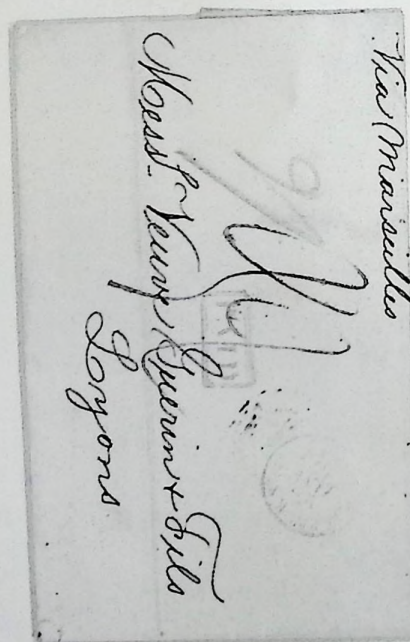 Via Marseilles
Messrs Veuve Guerin & Fils
Lyons